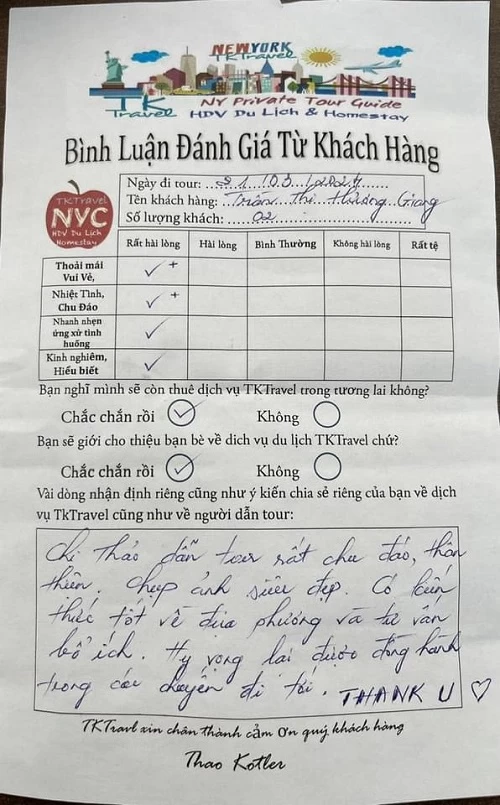 NEWYORK
TKTravel
TK
Travel
NY Private Tour Guide
HDV Du Lịch & Homestay
Bình Luận Đánh Giá Từ Khách Hàng
TKTravel
NYC
HDV Du Lịch
Homestay
Ngày đi tour: 31/03/2024
Tên khách hàng: Trần Thị Hương Giang
Số lượng khách: 02
Rất hài lòng Hài lòng Bình Thường Không hài lòng Rất tệ
Thoải mái
Vui Vẻ, ✓+
Nhiệt Tình,
Chu Đáo ✓+
Nhanh nhẹn
ứng xử tình
huống ✓
Kinh nghiệm,
Hiểu biết ✓
Bạn nghĩ mình sẽ còn thuê dịch vụ TKTravel trong tương lai không?
Chắc chắn rồi ✓ Không
Bạn sẽ giới cho thiệu bạn bè về dich vụ du lịch TKTravel chứ?
Chắc chắn rồi ✓ Không
Vài dòng nhận định riêng cũng như ý kiến chia sẻ riêng của bạn về dịch
vụ TkTravel cũng như về người dẫn tour:
Chị Thảo dẫn tour rất chu đáo, thân
thiện. Chụp ảnh siêu đẹp. Có kiến
thức tốt về địa phương và tư vấn
bổ ích. Hy vọng lại được đồng hành
trong các chuyến đi tới. THANK U ♡
TKTravl xin chân thành cảm ơn quý khách hàng
Thao Kotler